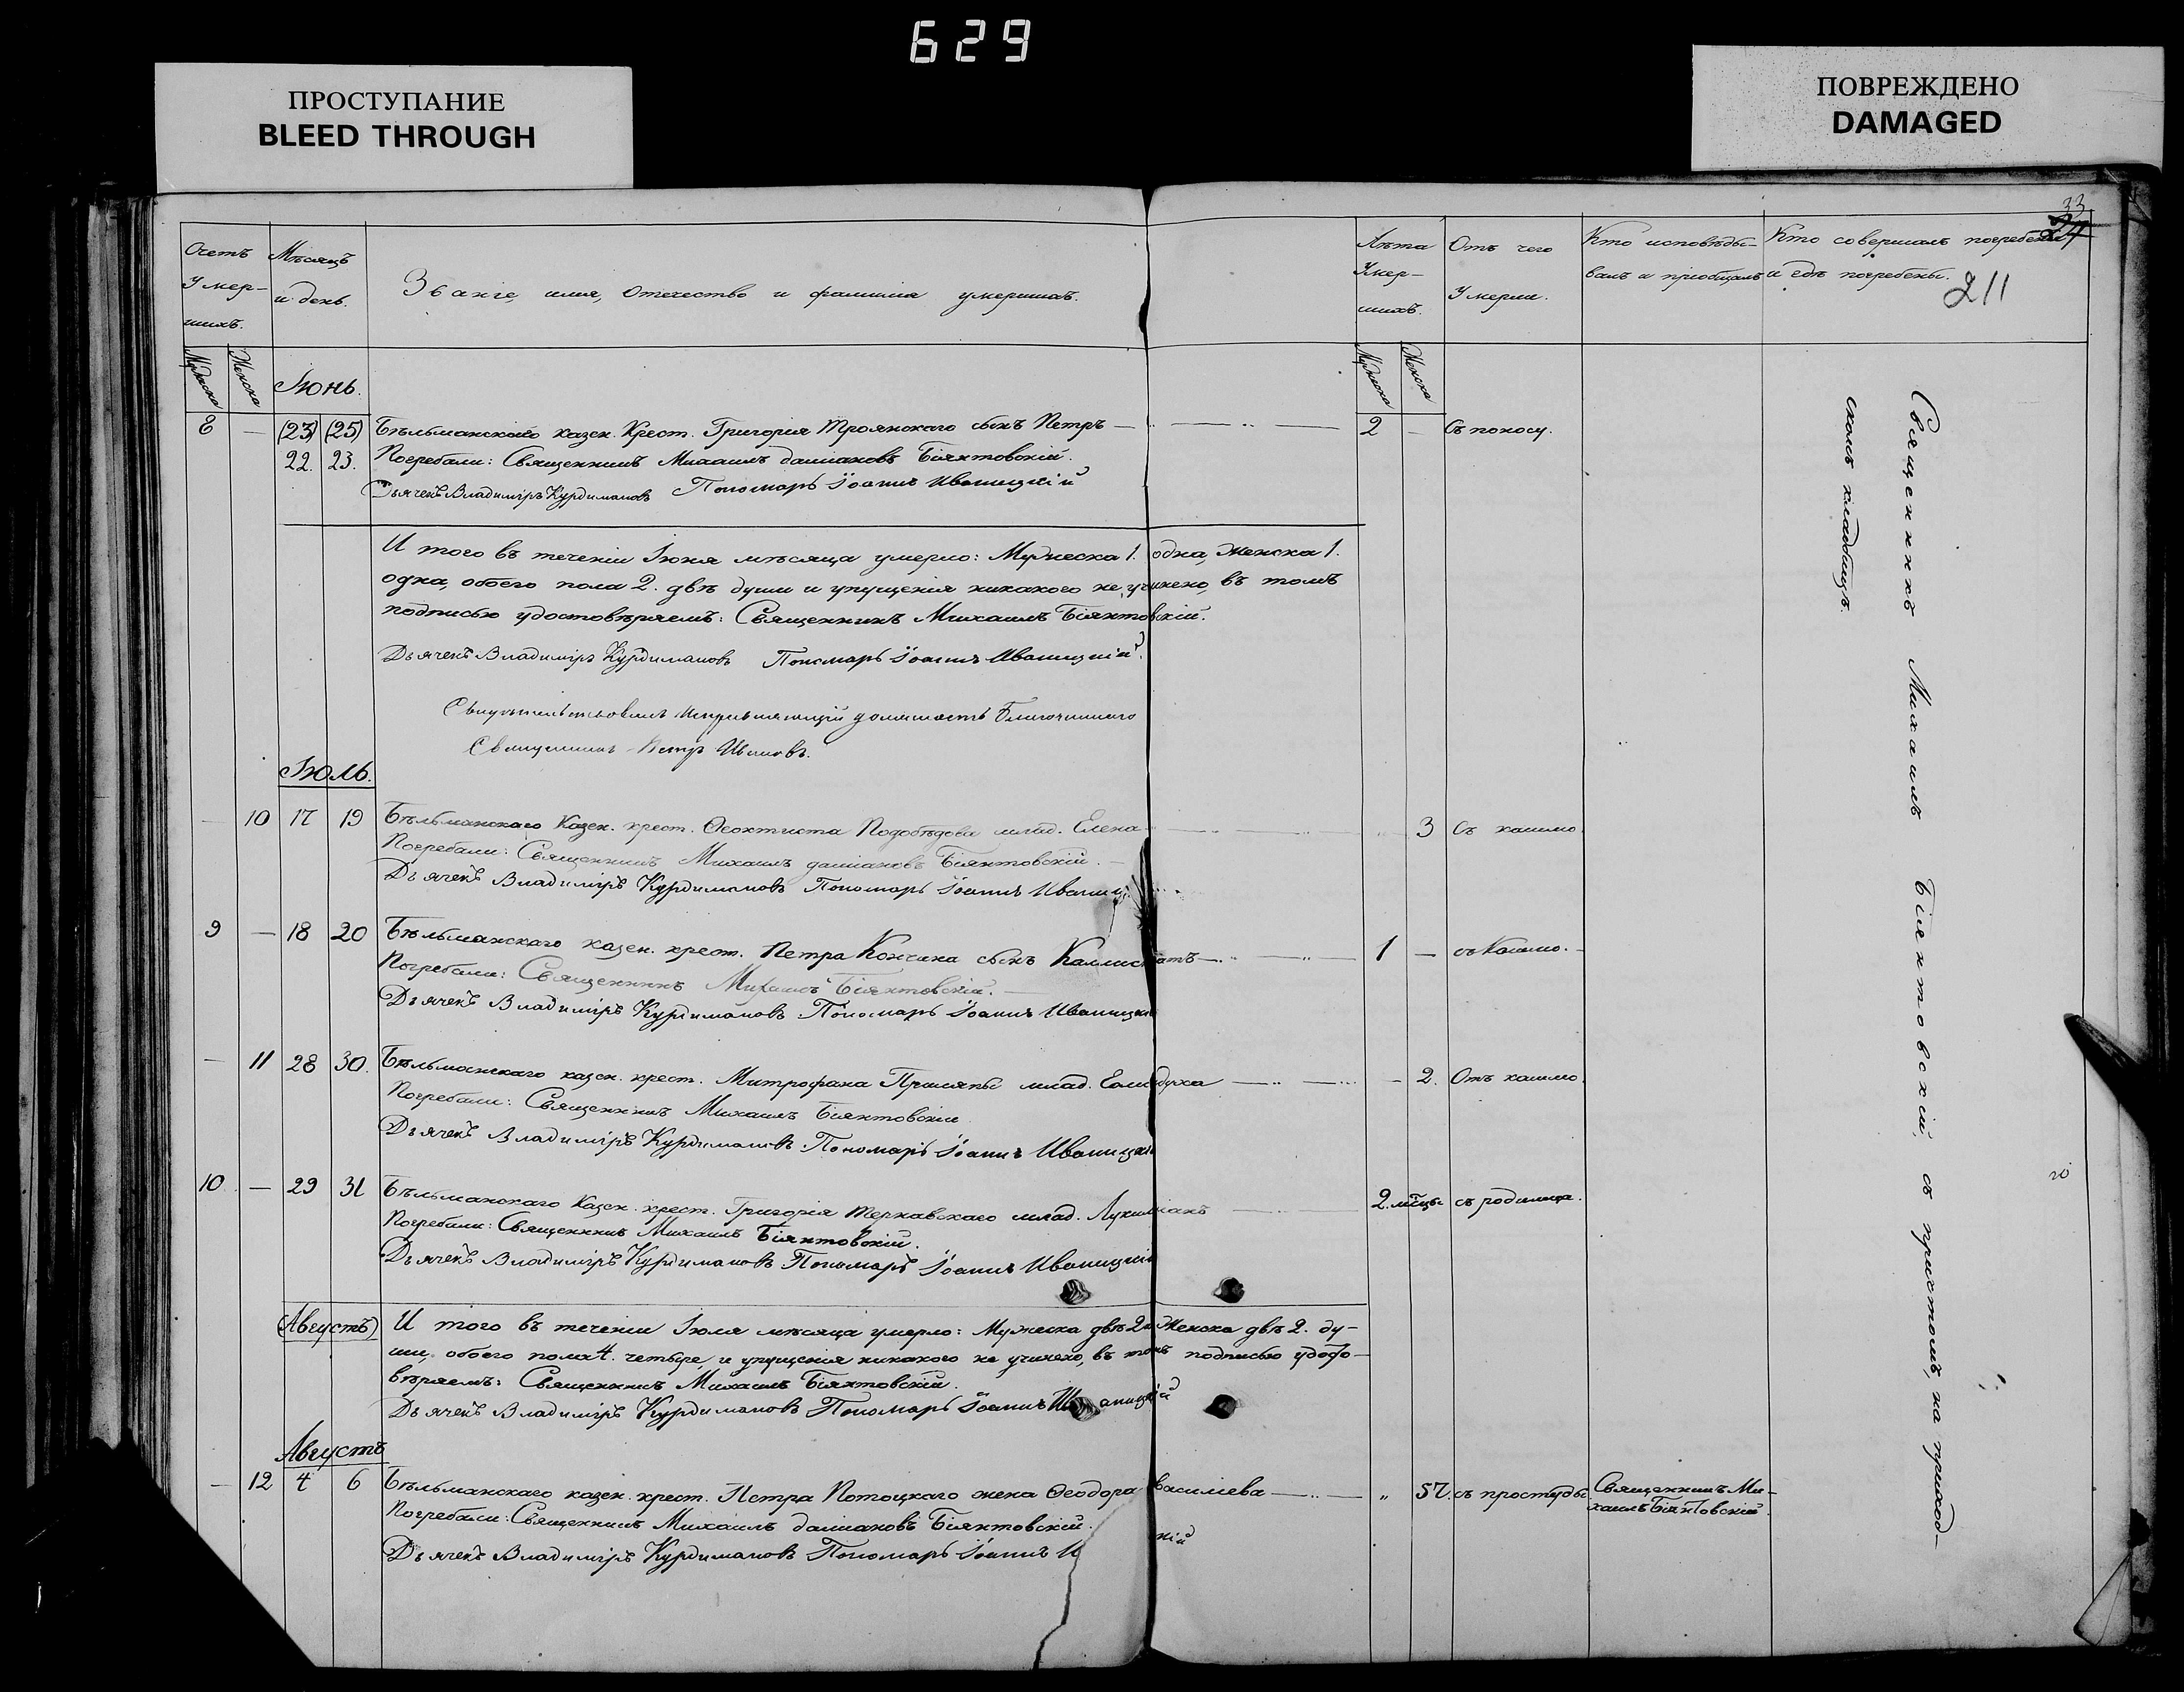 629
ПРОСТУПАНИЕ
BLEED THROUGH
ПОВРЕЖДЕНО
DAMAGED
33
24
211
Счетъ Умер-шихъ.
Мѣсяцъ и день.
Званіе, имя, Отечество и фамилія умершихъ.
Лѣта Умер-шихъ.
Отъ чего Умерли.
Кто исповѣды-валъ и пріобщалъ
Кто совершалъ погребеніе и гдѣ погребены.
Мужеска Женска
Мужеска Женска
Іюнь.
8 — (23) (25) Бѣльманскаго казен. Крест. Григорія Троянскаго сынъ Петръ — 2 — Съ поносу.
22. 23. Погребали: Священникъ Михаилъ Даміановъ Біянтовскій.
Дьячекъ Владиміръ Курдимановъ Пономарь Іоаннъ Иваницкій
И того въ теченіи Іюня мѣсяца умерло: Мужеска 1. одна, Женска 1.
одна, обоего пола 2. двѣ души и упущенія никакого не учинено, въ томъ
подписью удостовѣряемъ: Священникъ Михаилъ Біянтовскій.
Дьячекъ Владиміръ Курдимановъ Пономарь Іоаннъ Иваницкій.
Свидѣтельствовалъ Исправляющій должность Благочиннаго
Священникъ Петръ Ивановъ.
Іюль.
— 10 17 19 Бѣльманскаго Казен. крест. Ѳеоктиста Подобѣдова млад. Елена — „ 3 Съ кашлю.
Погребали: Священникъ Михаилъ Даміановъ Біянтовскій. —
Дьячекъ Владиміръ Курдимановъ Пономарь Іоаннъ Иваниц
9 — 18 20 Бѣльманскаго казен. крест. Петра Кончина сынъ Каллистратъ — 1 — съ Кашлю. —
Погребали: Священникъ Михаилъ Біянтовскій. —
Дьячекъ Владиміръ Курдимановъ Пономарь Іоаннъ Иваницкій
— 11 28 30. Бѣльманскаго казен. крест. Митрофана млад. — — 2. Отъ кашлю.
Погребали: Священникъ Михаилъ Біянтовскій
Дьячекъ Владиміръ Курдимановъ Пономарь Іоаннъ Иваницкій
10 — 29 31 Бѣльманскаго Казен. крест. Григорія Тернавскаго млад. Лукиліанъ — 2. мѣсцы съ родимца.
Погребали: Священникъ Михаилъ Біянтовскій.
Дьячекъ Владиміръ Курдимановъ Пономарь Іоаннъ Иваницкій
(Августъ) И того въ теченіи Іюля мѣсяца умерло: Мужеска двѣ 2 и Женска двѣ 2. ду-
ши, обоего пола 4. четыре, и упущенія никакого не учинено, въ томъ подписью удосто-
вѣряемъ: Священникъ Михаилъ Біянтовскій.
Дьячекъ Владиміръ Курдимановъ Пономарь Іоаннъ Иваницкій
Августъ
— 12 4 6 Бѣльманскаго казен. крест. Петра Потоцкаго жена Ѳеодора Василіева — „ 57. съ простуды Священникъ Ми-
хаилъ Біянтовскій.
Погребали: Священникъ Михаилъ Даміановъ Біянтовскій.
Дьячекъ Владиміръ Курдимановъ Пономарь Іоаннъ И кій
Священникъ Михаилъ Біянтовскій, съ причтомъ, на приход-
скомъ кладбищѣ.